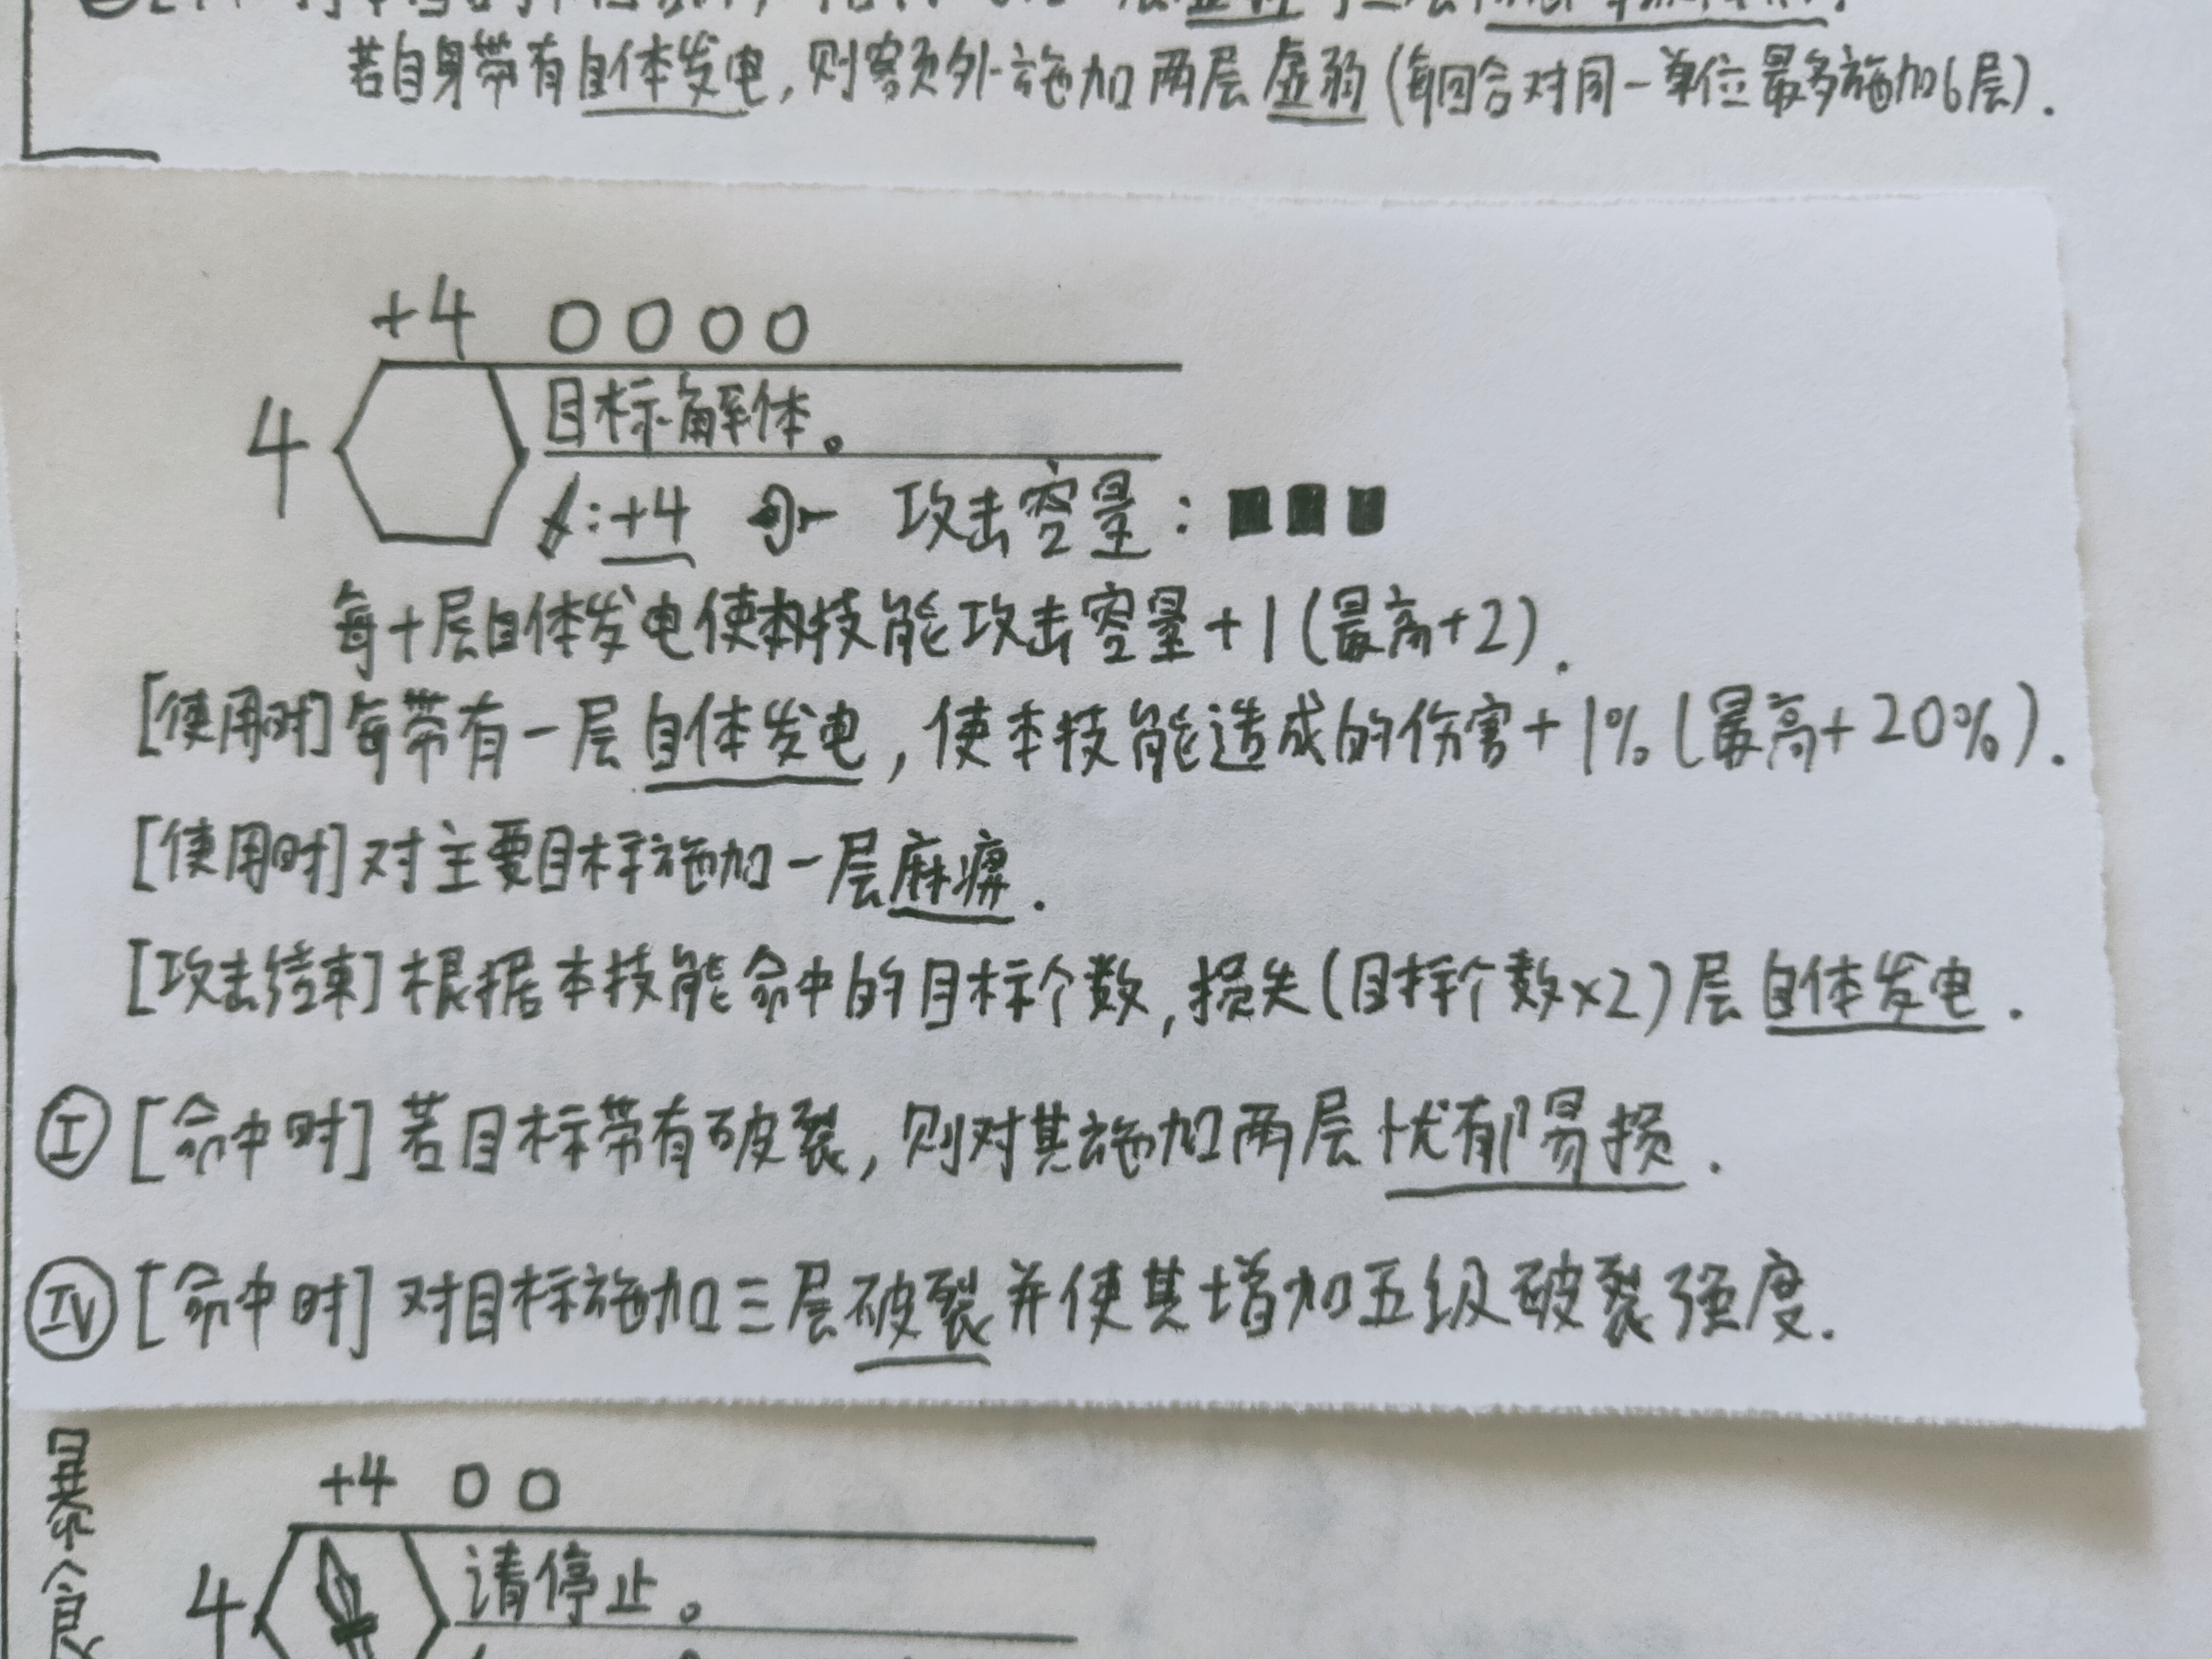 若自身带有自体发电,则额外施加两层虚弱(每回合对同一单位最多施加6层).
+4 0000
4
目标解体。
:+4 攻击容量:■■■
每十层自体发电使本技能攻击容量+1(最高+2).
[使用时]每带有一层自体发电,使本技能造成的伤害+1%(最高+20%).
[使用时]对主要目标施加一层麻痹.
[攻击结束]根据本技能命中的目标个数,损失(目标个数×2)层自体发电.
Ⅰ[命中时]若目标带有破裂,则对其施加两层忧郁易损.
Ⅳ[命中时]对目标施加三层破裂并使其增加五级破裂强度.
+4 00
4
请停止。